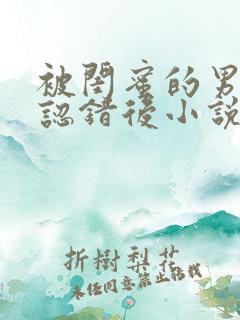 被閨蜜的男
認錯後小說
折樹梨花
未经同意禁止转载